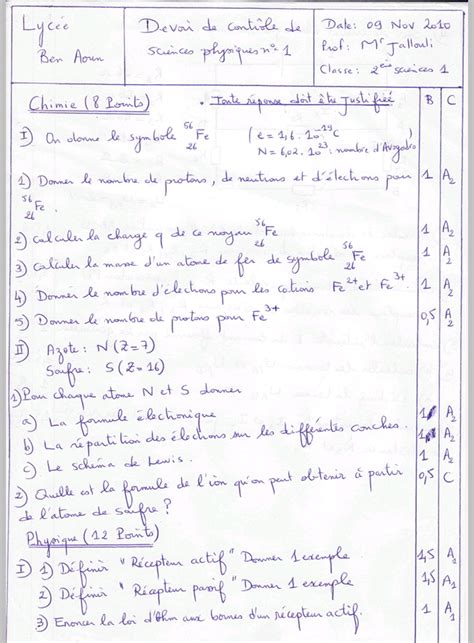 Lycée
Ben Aoun
Devoir de contrôle de
sciences physiques n° 1
Date: 09 Nov 2010
Prof: Mr Jallouli
Classe: 2ème sciences 1
Chimie (8 Points) • Toute réponse doit être justifiée B C
I) On donne le symbole 56 26 Fe (e = 1,6 . 10^-19 C
N = 6,02 . 10^23 : nombre d'Avogadro
1) Donner le nombre de protons, de neutrons et d'électrons pour 1 A2
56 26 Fe.
2) Calculer la charge q de ce noyau 56 26 Fe 1 A2
3) Calculer la masse d'un atome de fer de symbole 56 26 Fe 1 A2
4) Donner le nombre d'électrons pour les cations Fe2+ et Fe3+. 1 A2
5) Donner le nombre de protons pour Fe3+ 0,5 A2
II) Azote : N (Z = 7)
Soufre : S (Z = 16)
1) Pour chaque atome N et S donner
a) La formule électronique 1 A2
b) La répartition des électrons sur les différentes couches. 1 A2
c) Le schéma de Lewis. 1 A2
2) Quelle est la formule de l'ion qu'on peut obtenir à partir 0,5 C
de l'atome de soufre ?
Physique (12 Points)
I) 1) Définir "Récepteur actif" Donner 1 exemple. 1,5 A2
2) Définir "Récepteur passif" Donner 1 exemple 1,5 A1
3) Enoncer la loi d'Ohm aux bornes d'un récepteur actif. 1 A1